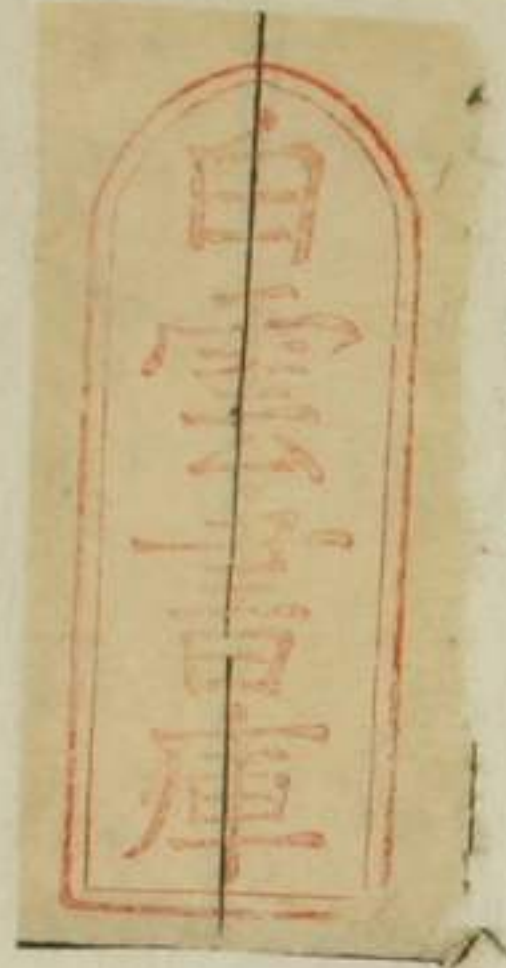 白雲書庫